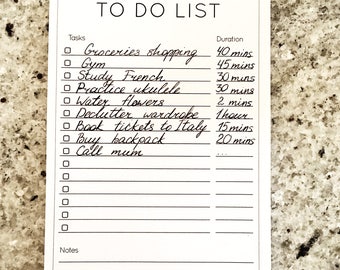 TO DO LIST
Tasks Duration
Groceries shopping 40 mins
Gym 45 mins
Study French 30 mins
Practice ukulele 30 mins
Water flowers 2 mins
Declutter wardrobe 1 hour
Book tickets to Italy 15 mins
Buy backpack 20 mins
Call mum ...
Notes